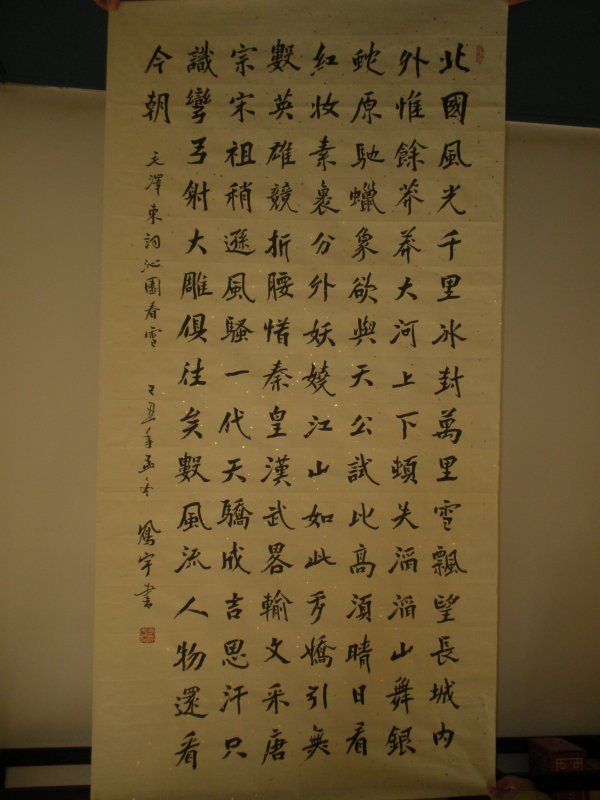 北國風光千里冰封萬里雪飄望長城内
外惟餘莽莽大河上下頓失滔滔山舞銀
蛇原馳蠟象欲與天公試比高須晴日看
紅妝素裹分外妖嬈江山如此多嬌引無
數英雄競折腰惜秦皇漢武畧輸文采唐
宗宋祖稍遜風騷一代天驕成吉思汗只
識彎弓射大雕俱往矣數風流人物還看
今朝
毛澤東詞沁園春雪 己丑年孟冬 鳳宇書